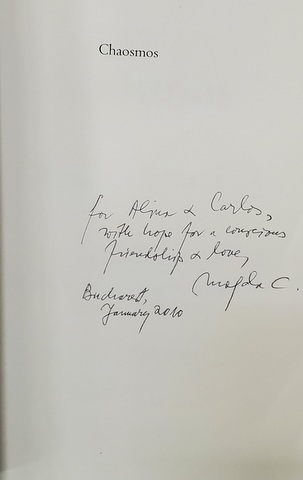 Chaosmos
for Alina & Carlos,
with hope for a conscious
friendship & love,
Magda C.
Bucharest,
January 2010